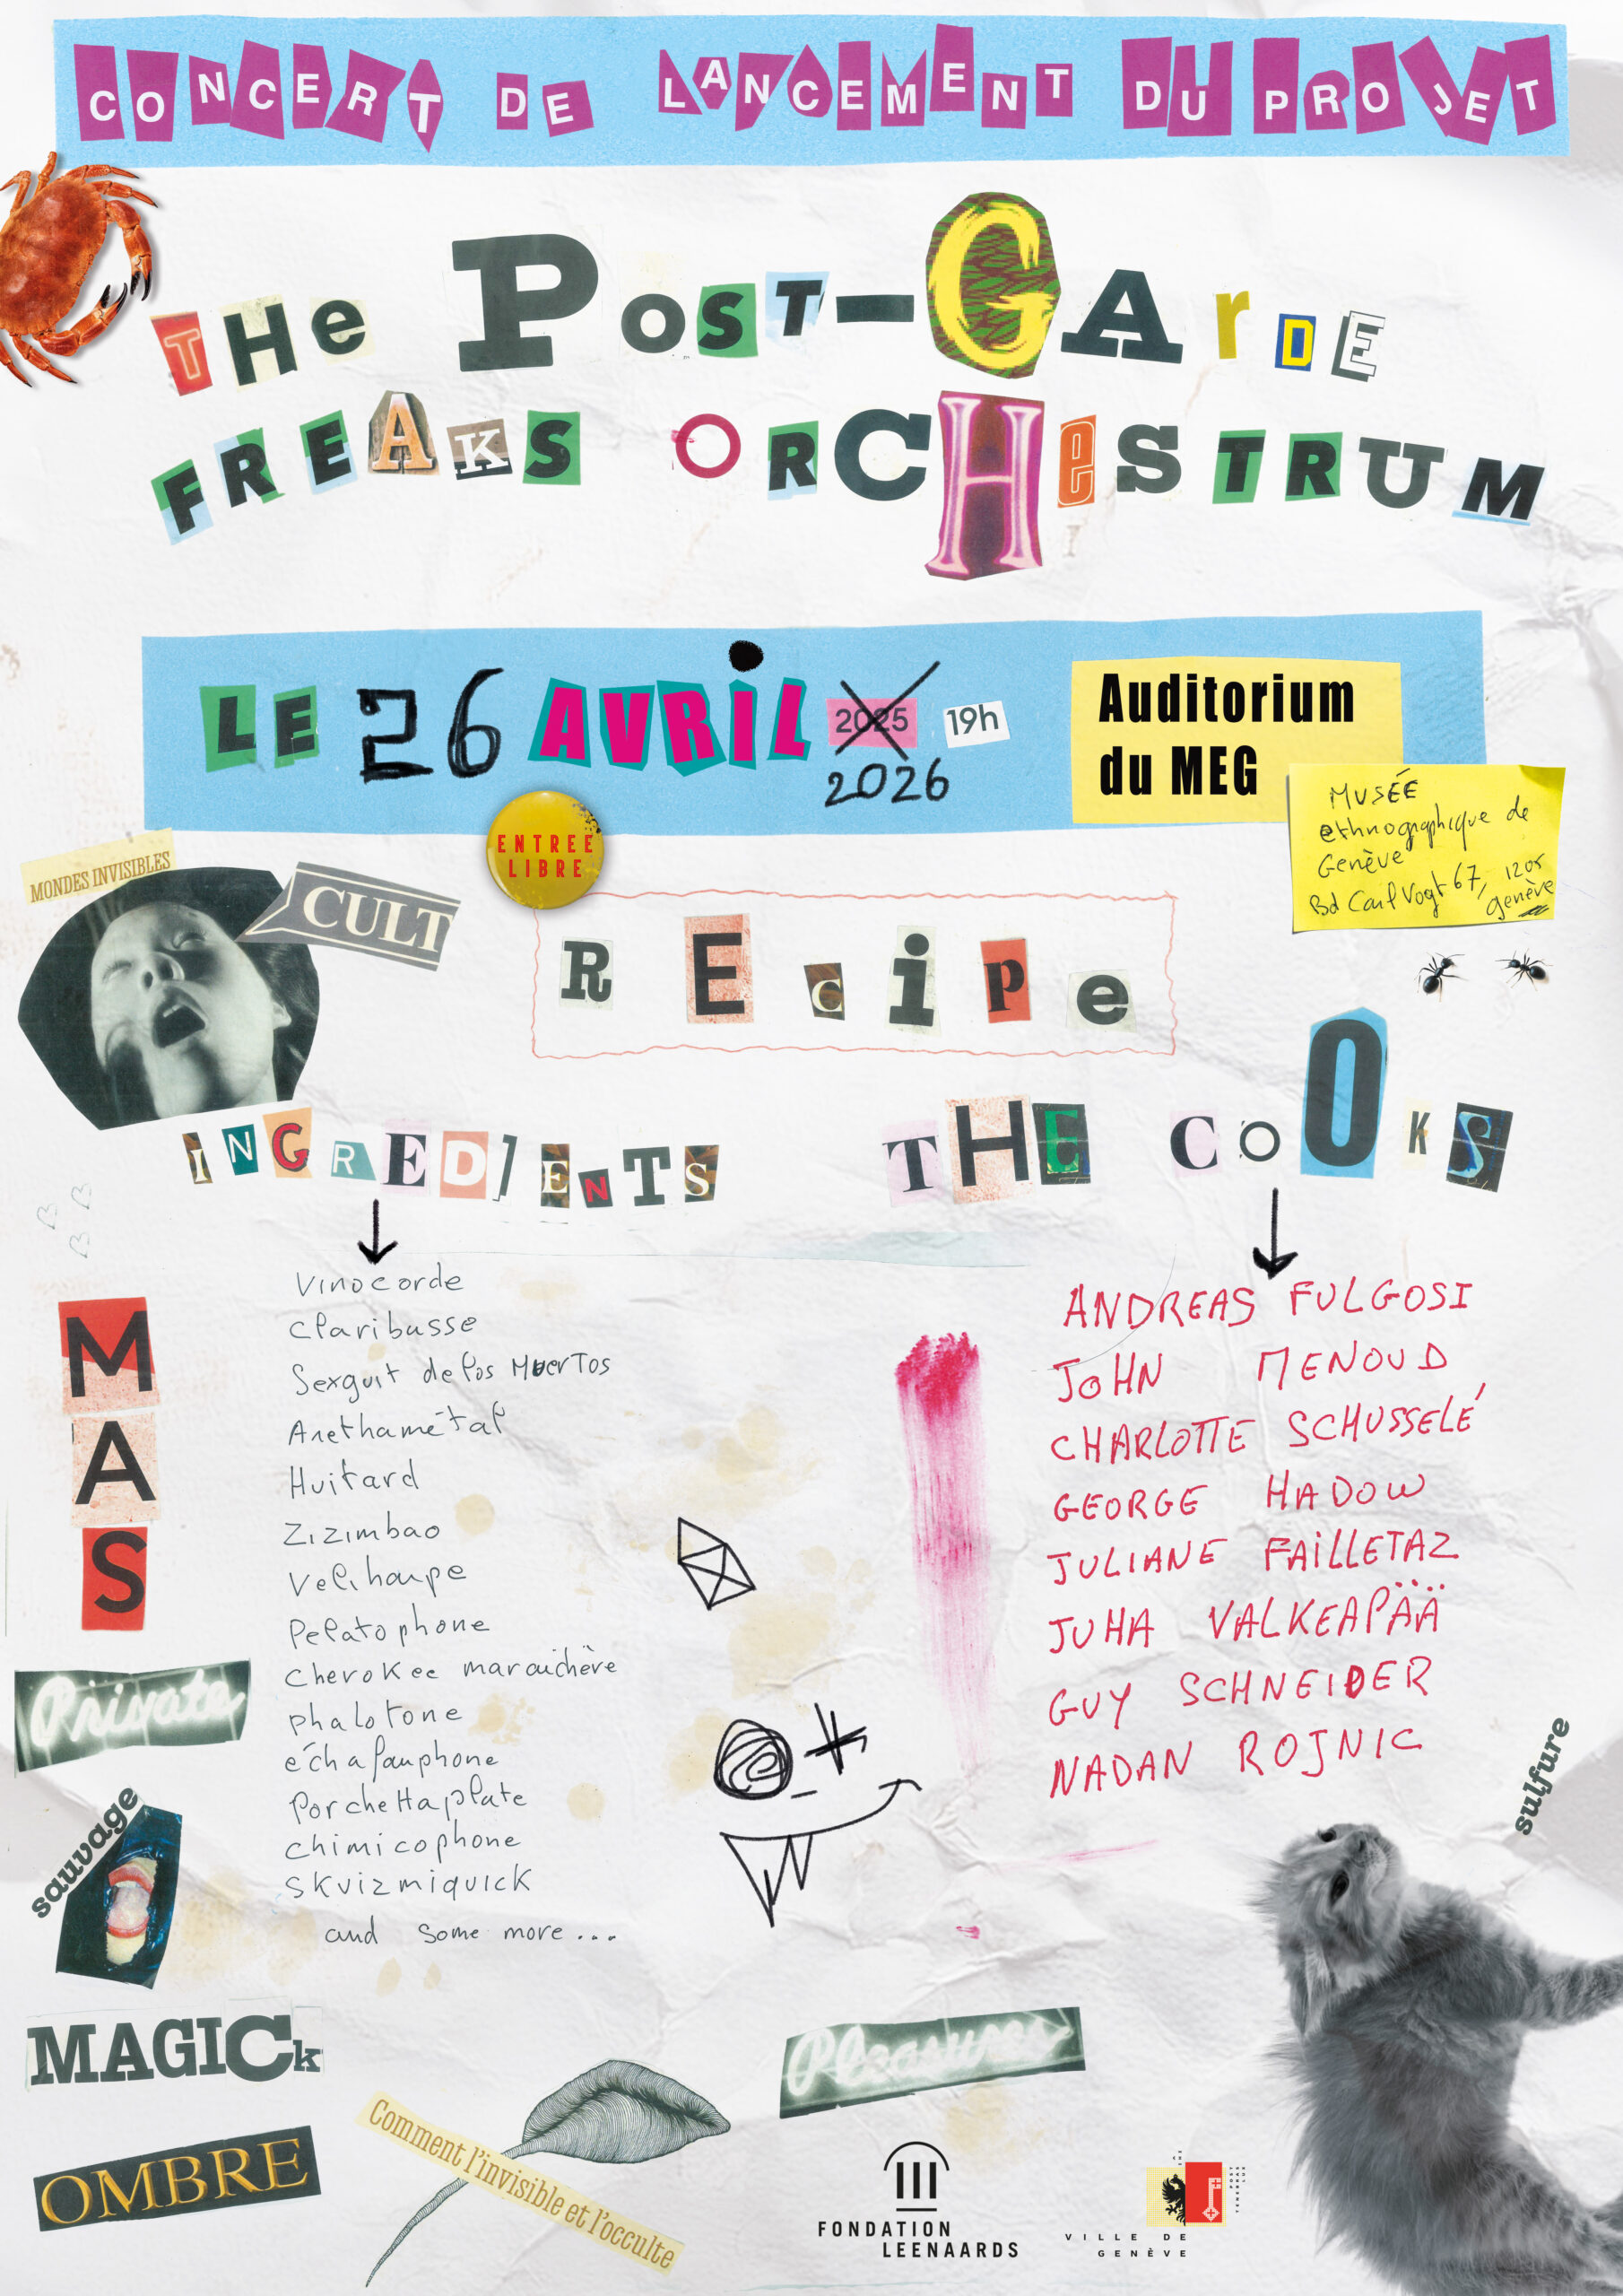 CONCERT DE LANCEMENT DU PROJET
THe POST-GArDE
FREAKS OrCHeSTRUM
LE 26 AVRiL 2025 19h
2026
Auditorium
du MEG
MUSÉE
ethnographique de
Genève
Bd Carl Vogt 67, 1205
genève
ENTREE
LIBRE
MONDES INVISIBLES
CULT
REcipe
INGREDIENTS
THE COOKS
Vinocorde
Claribasse
Sexguit de los MuerTos
Arethamétal
Huitard
Zizimbao
Veliharpe
Pelatophone
Cherokee maraichère
Phalotone
échafauphone
Porchettaplate
Chimicophone
Skvizmiquick
and some more...
ANDREAS FULGOSI
JOHN MENOUD
CHARLOTTE SCHUSSELÉ
GEORGE HADOW
JULIANE FAiLLETAZ
JUHA VALKEAPÄÄ
GUY SCHNEIDER
NADAN ROJNIC
MAS
Private
sauvage
sulfure
MAGICk
Pleasures
OMBRE
Comment l'invisible et l'occulte
FONDATION
LEENAARDS
VILLE DE
GENÈVE